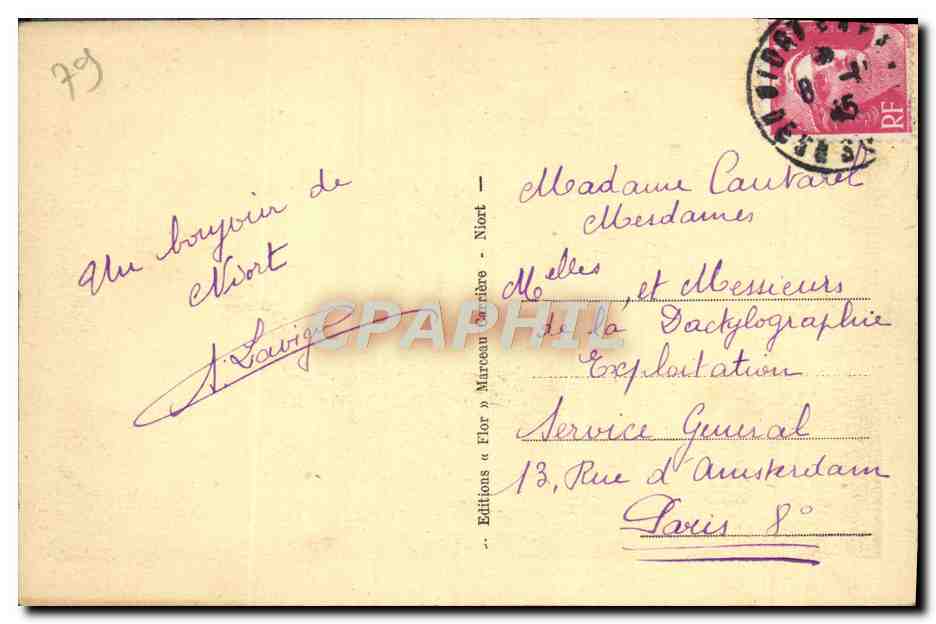 79
Un bonjour de
Niort
CPAPHIL
Editions « Flor » Marceau Carrière - Niort —
RF
Madame
Mesdames
Melles, et Messieurs
de la Dactylographie
Exploitation
Service General
13, Rue d'Amsterdam
Paris 8°